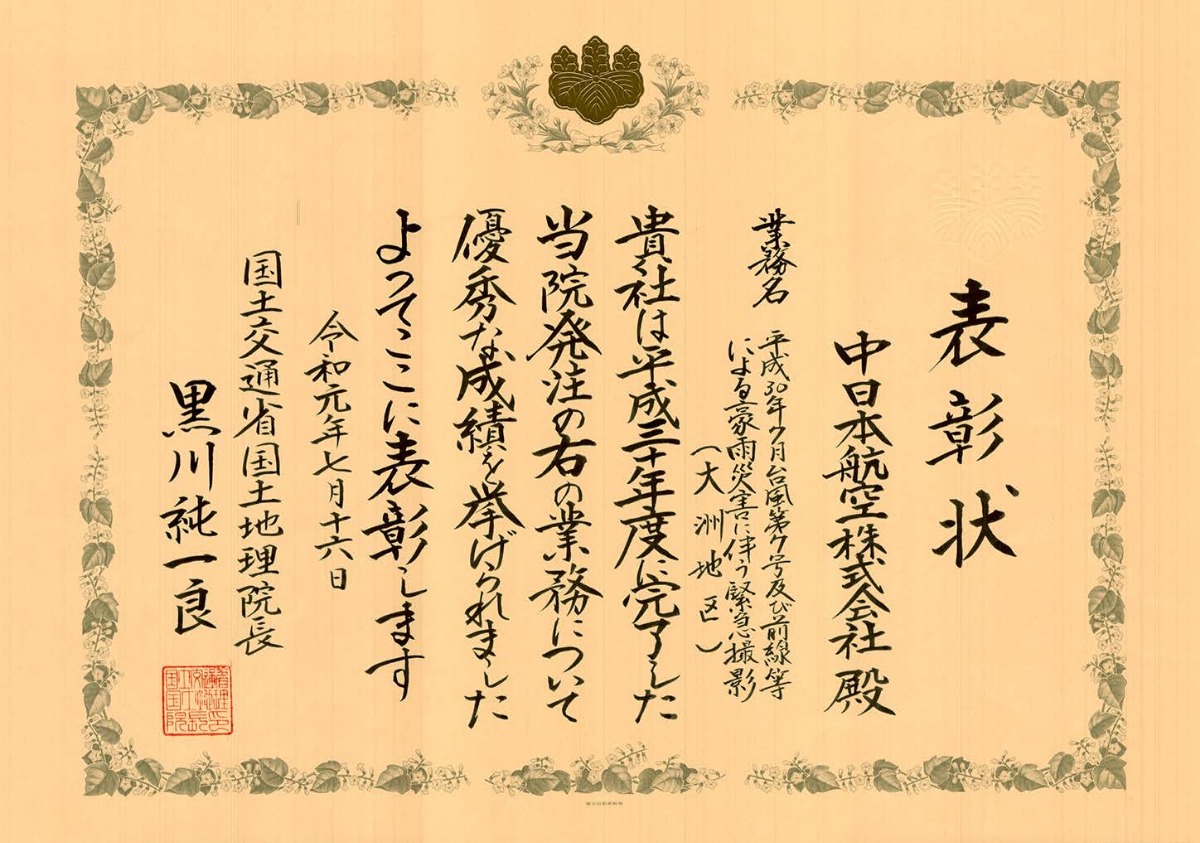 表彰状
中日本航空株式会社 殿
業務名 平成30年7月台風第7号及び前線等
による豪雨災害に伴う緊急撮影
（大洲地区）
貴社は平成三十年度に完了した
当院発注の右の業務について
優秀な成績を挙げられました
よってここに表彰します
令和元年七月十六日
国土交通省国土地理院長
黒川純一良